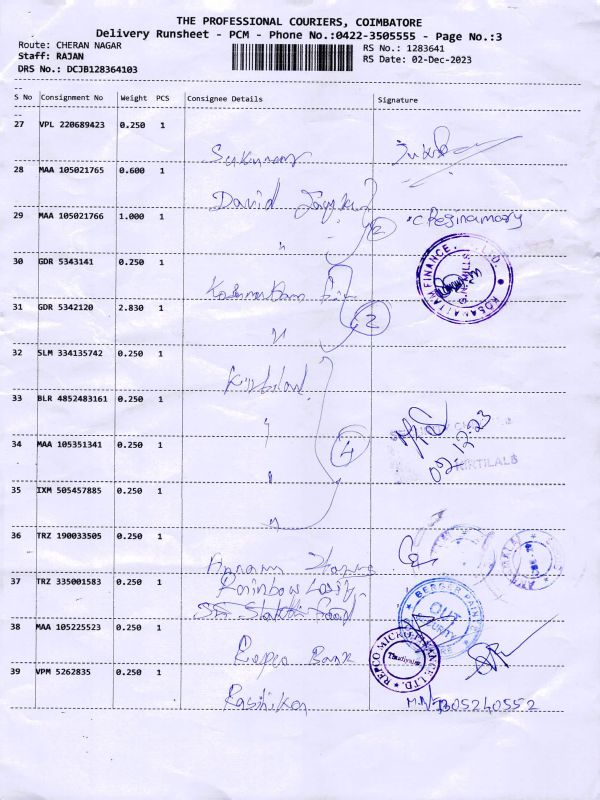 THE PROFESSIONAL COURIERS, COIMBATORE
Delivery Runsheet - PCM - Phone No.:0422-3505555 - Page No.:3
Route: CHERAN NAGAR
RS No.: 1283641
Staff: RAJAN
RS Date: 02-Dec-2023
DRS No.: DCJB128364103
S No Consignment No Weight PCS Consignee Details Signature
27 VPL 220689423 0.250 1
Sukumar
28 MAA 105021765 0.600 1
David
29 MAA 105021766 1.000 1
" 2 C Reginamary
30 GDR 5343141 0.250 1
KOSAMATTAM FINANCE. LTD.
31 GDR 5342120 2.830 1
" 2
32 SLM 334135742 0.250 1
Kirtilal
33 BLR 4852483161 0.250 1
"
34 MAA 105351341 0.250 1
" 4 02-12-23
KIRTILALS
35 IXM 505457885 0.250 1
"
36 TRZ 190033505 0.250 1
37 TRZ 335001583 0.250 1
Rainbow
BERGER PAINTS
OUT
38 MAA 105225523 0.250 1
Repco Bank
REPCO MICRO FINANCE LTD.
39 VPM 5262835 0.250 1
Rashikan